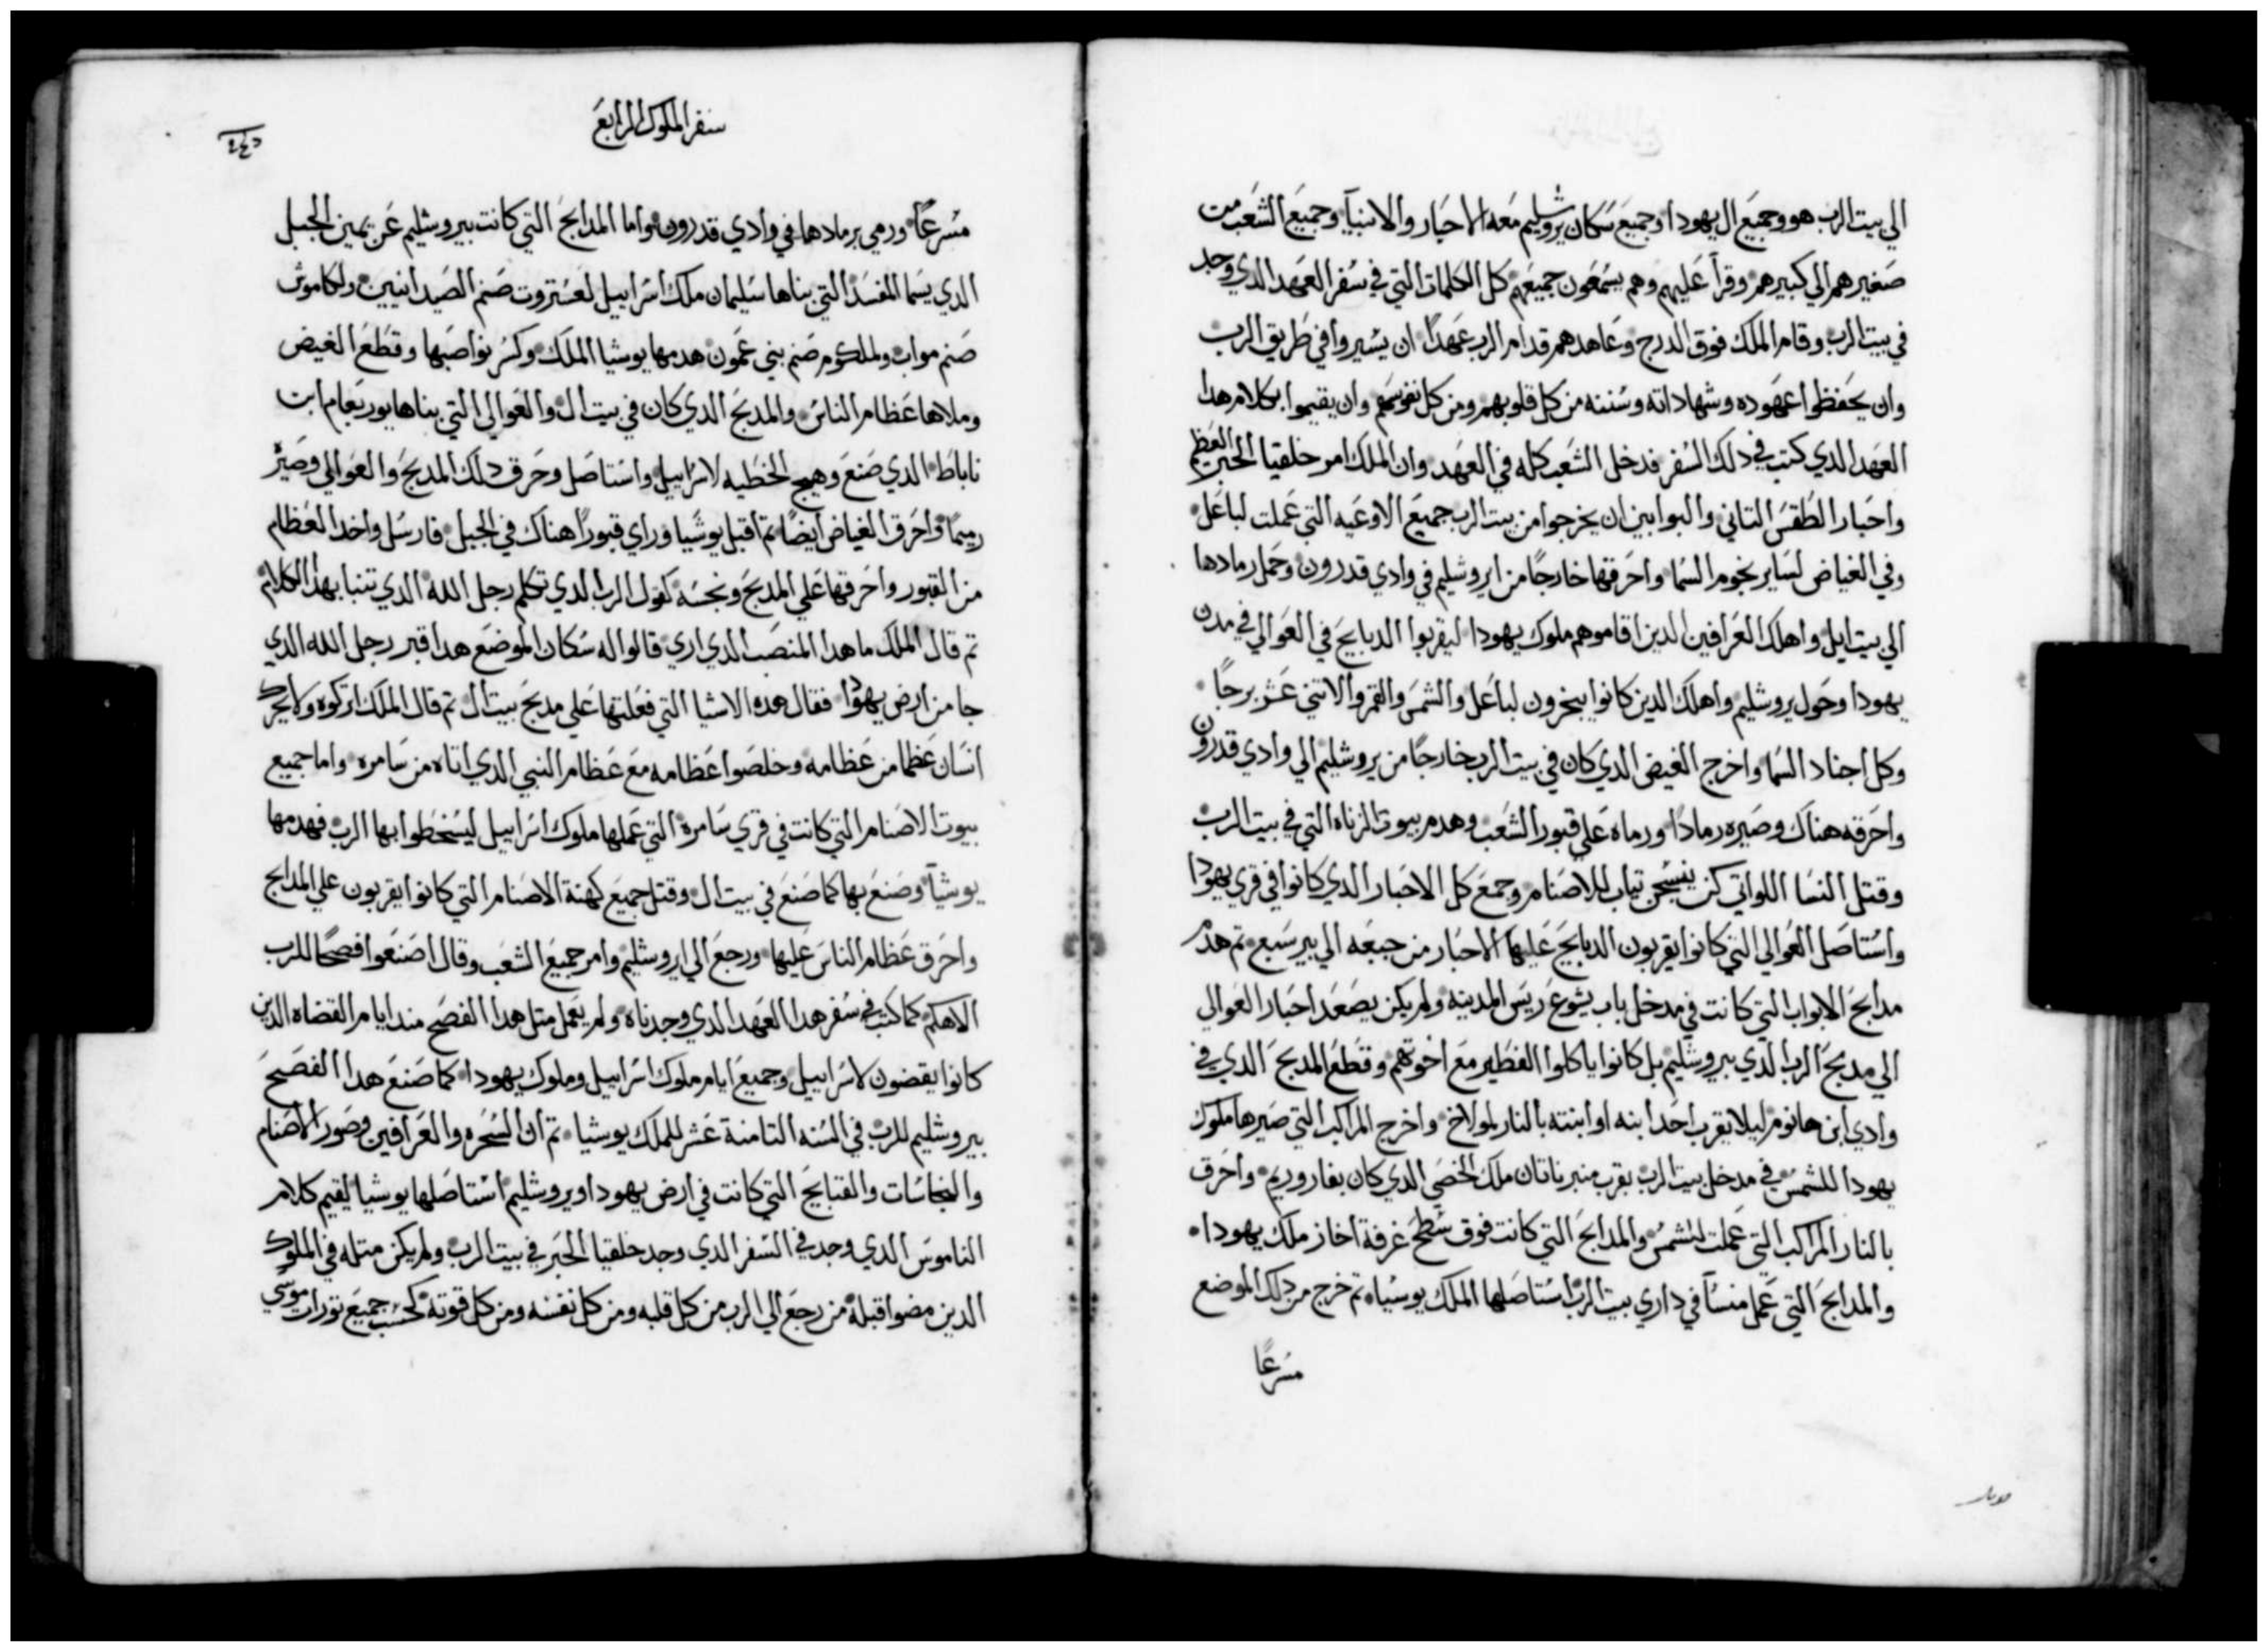 الي بيت الرب هو وجميع ال يهودا وجميع سكان يروشليم معه الاحبار والانبيآ وجميع الشعب من
صغيرهم الي كبيرهم وقرآ عليهم وهم يسمعون جميعهم كل الكلمات التي في سفر العهد الدي وجد
في بيت الرب وقام الملك فوق الدرج وعاهدهم قدام الرب عهدًا ان يسيروا في طريق الرب
وان يحفظوا عهوده وشهاداته وسننه من كل قلوبهم ومن كل نفوسهم وان يقيموا بكلام هدا
العهد الدي كتب في دلك السفر فدخل الشعب كله في العهد وان الملك امر خلقيا الحبر العظيم
واحبار الطقس التاني والبوابين ان يخرجوا من بيت الرب جميع الاوعيه التي عملت لباعل
وفي الغياض لساير نجوم السما واحرقها خارجًا من ايروشليم في وادي قدرون وحمل رمادها
الي بيت ايل واهلك العرافين الدين اقاموهم ملوك يهودا ليقربوا الدبايح في العوالي في مدن
يهودا وحول يروشليم واهلك الدين كانوا يبخرون لباعل والشمس والقمر والاتني عشر برجًا
وكل اجناد السما واخرج الغيض الدي كان في بيت الرب خارجًا من يروشليم الي وادي قدرون
واحرقه هناك وصيره رمادًا ورماه علي قبور الشعب وهدم بيوت الزناه التي في بيت الرب
وقتل النسا اللواتي كن ينسجن تياب للاصنام وجمع كل الاحبار الدي كانوا في قري يهودا
واستاصل العوالي التي كانوا يقربون الدبايح عليها الاحبار من جبعه الي بير سبع تم هدم
مدابح الابواب التي كانت في مدخل باب يشوع ريس المدينه ولم يكن يصعد احبار العوالي
الي مدبح الرب الدي بيروشليم بل كانوا ياكلوا الفطير مع اخوتهم وقطع المدبح الدي في
وادي ابن هانوم ليلا يقرب احد ابنه او ابنته بالنار لمولاخ واخرج المراكب التي صيرها ملوك
يهودا للشمس في مدخل بيت الرب بقرب منبر ناتان ملك الخصي الدي كان بفاروريم واحرق
بالنار المراكب التي عملت للشمس والمدابح التي كانت فوق سطح غرفة اخاز ملك يهودا
والمدابح التي عمل منسآ في داري بيت الرب استاصلها الملك يوشيا تم خرج من دلك الموضع
مسرعًا
سفر الملوك الرابع
مسرعًا ورمي برمادها في وادي قدرون واما المدابح التي كانت بيروشليم عن يمين الجبل
الدي يسما المفسد التي بناها سليمان ملك اسراييل لعستروت صنم الصيدانيين ولكاموش
صنم مواب ولملكوم صنم بني عمون هدمها يوشيا الملك وكسر نواصبها وقطع الغيض
وملاها عظام الناس والمدبح الدي كان في بيت ال والعوالي التي بناها يوربعام ابن
ناباط الدي صنع وهيج الخطيه لاسراييل واستاصل وحرق دلك المدبح والعوالي وصير
رميمًا واحرق الغياض ايضًا تم اقبل يوشيا وراي قبورًا هناك في الجبل فارسل واخد العظام
من القبور واحرقها علي المدبح ونجسه كقول الرب الدي تكلم رجل الله الدي تنبا بهدا الكلام
تم قال الملك ما هدا المنصب الدي اري قالوا له سكان الموضع هدا قبر رجل الله الدي
جا من ارض يهودا فقال هده الاشيا التي فعلتها علي مدبح بيت ال تم قال الملك اتركوه ولا يحرك
انسان عظما من عظامه وخلصوا عظامه مع عظام النبي الدي اتاه من سامره واما جميع
بيوت الاصنام التي كانت في قري سامرة التي عملها ملوك اسراييل ليسخطوا بها الرب فهدمها
يوشيآ وصنع بها كما صنع في بيت ال وقتل جميع كهنة الاصنام التي كانوا يقربون علي المدابح
واحرق عظام الناس عليها ورجع الي ايروشليم وامر جميع الشعب وقال اصنعوا فصحًا للرب
الاهكم كما كتب في سفر هدا العهد الدي وجدناه ولم يعمل متل هدا الفصح مند ايام القضاه الدين
كانوا يقضون لاسراييل وجميع ايام ملوك اسراييل وملوك يهودا كما صنع هدا الفصح
بيروشليم للرب في السنه التامنة عشر للملك يوشيا تم ان السحره والعرافين وصور الاصنام
والنجاسات والقبايح التي كانت في ارض يهودا ويروشليم استاصلها يوشيا ليقيم كلام
الناموس الدي وجد في السفر الدي وجد خلقيا الحبر في بيت الرب ولم يكن متله في الملوك
الدين مضوا قبله من رجع الي الرب من كل قلبه ومن كل نفسه ومن كل قوته كحسب جميع تورات موسي